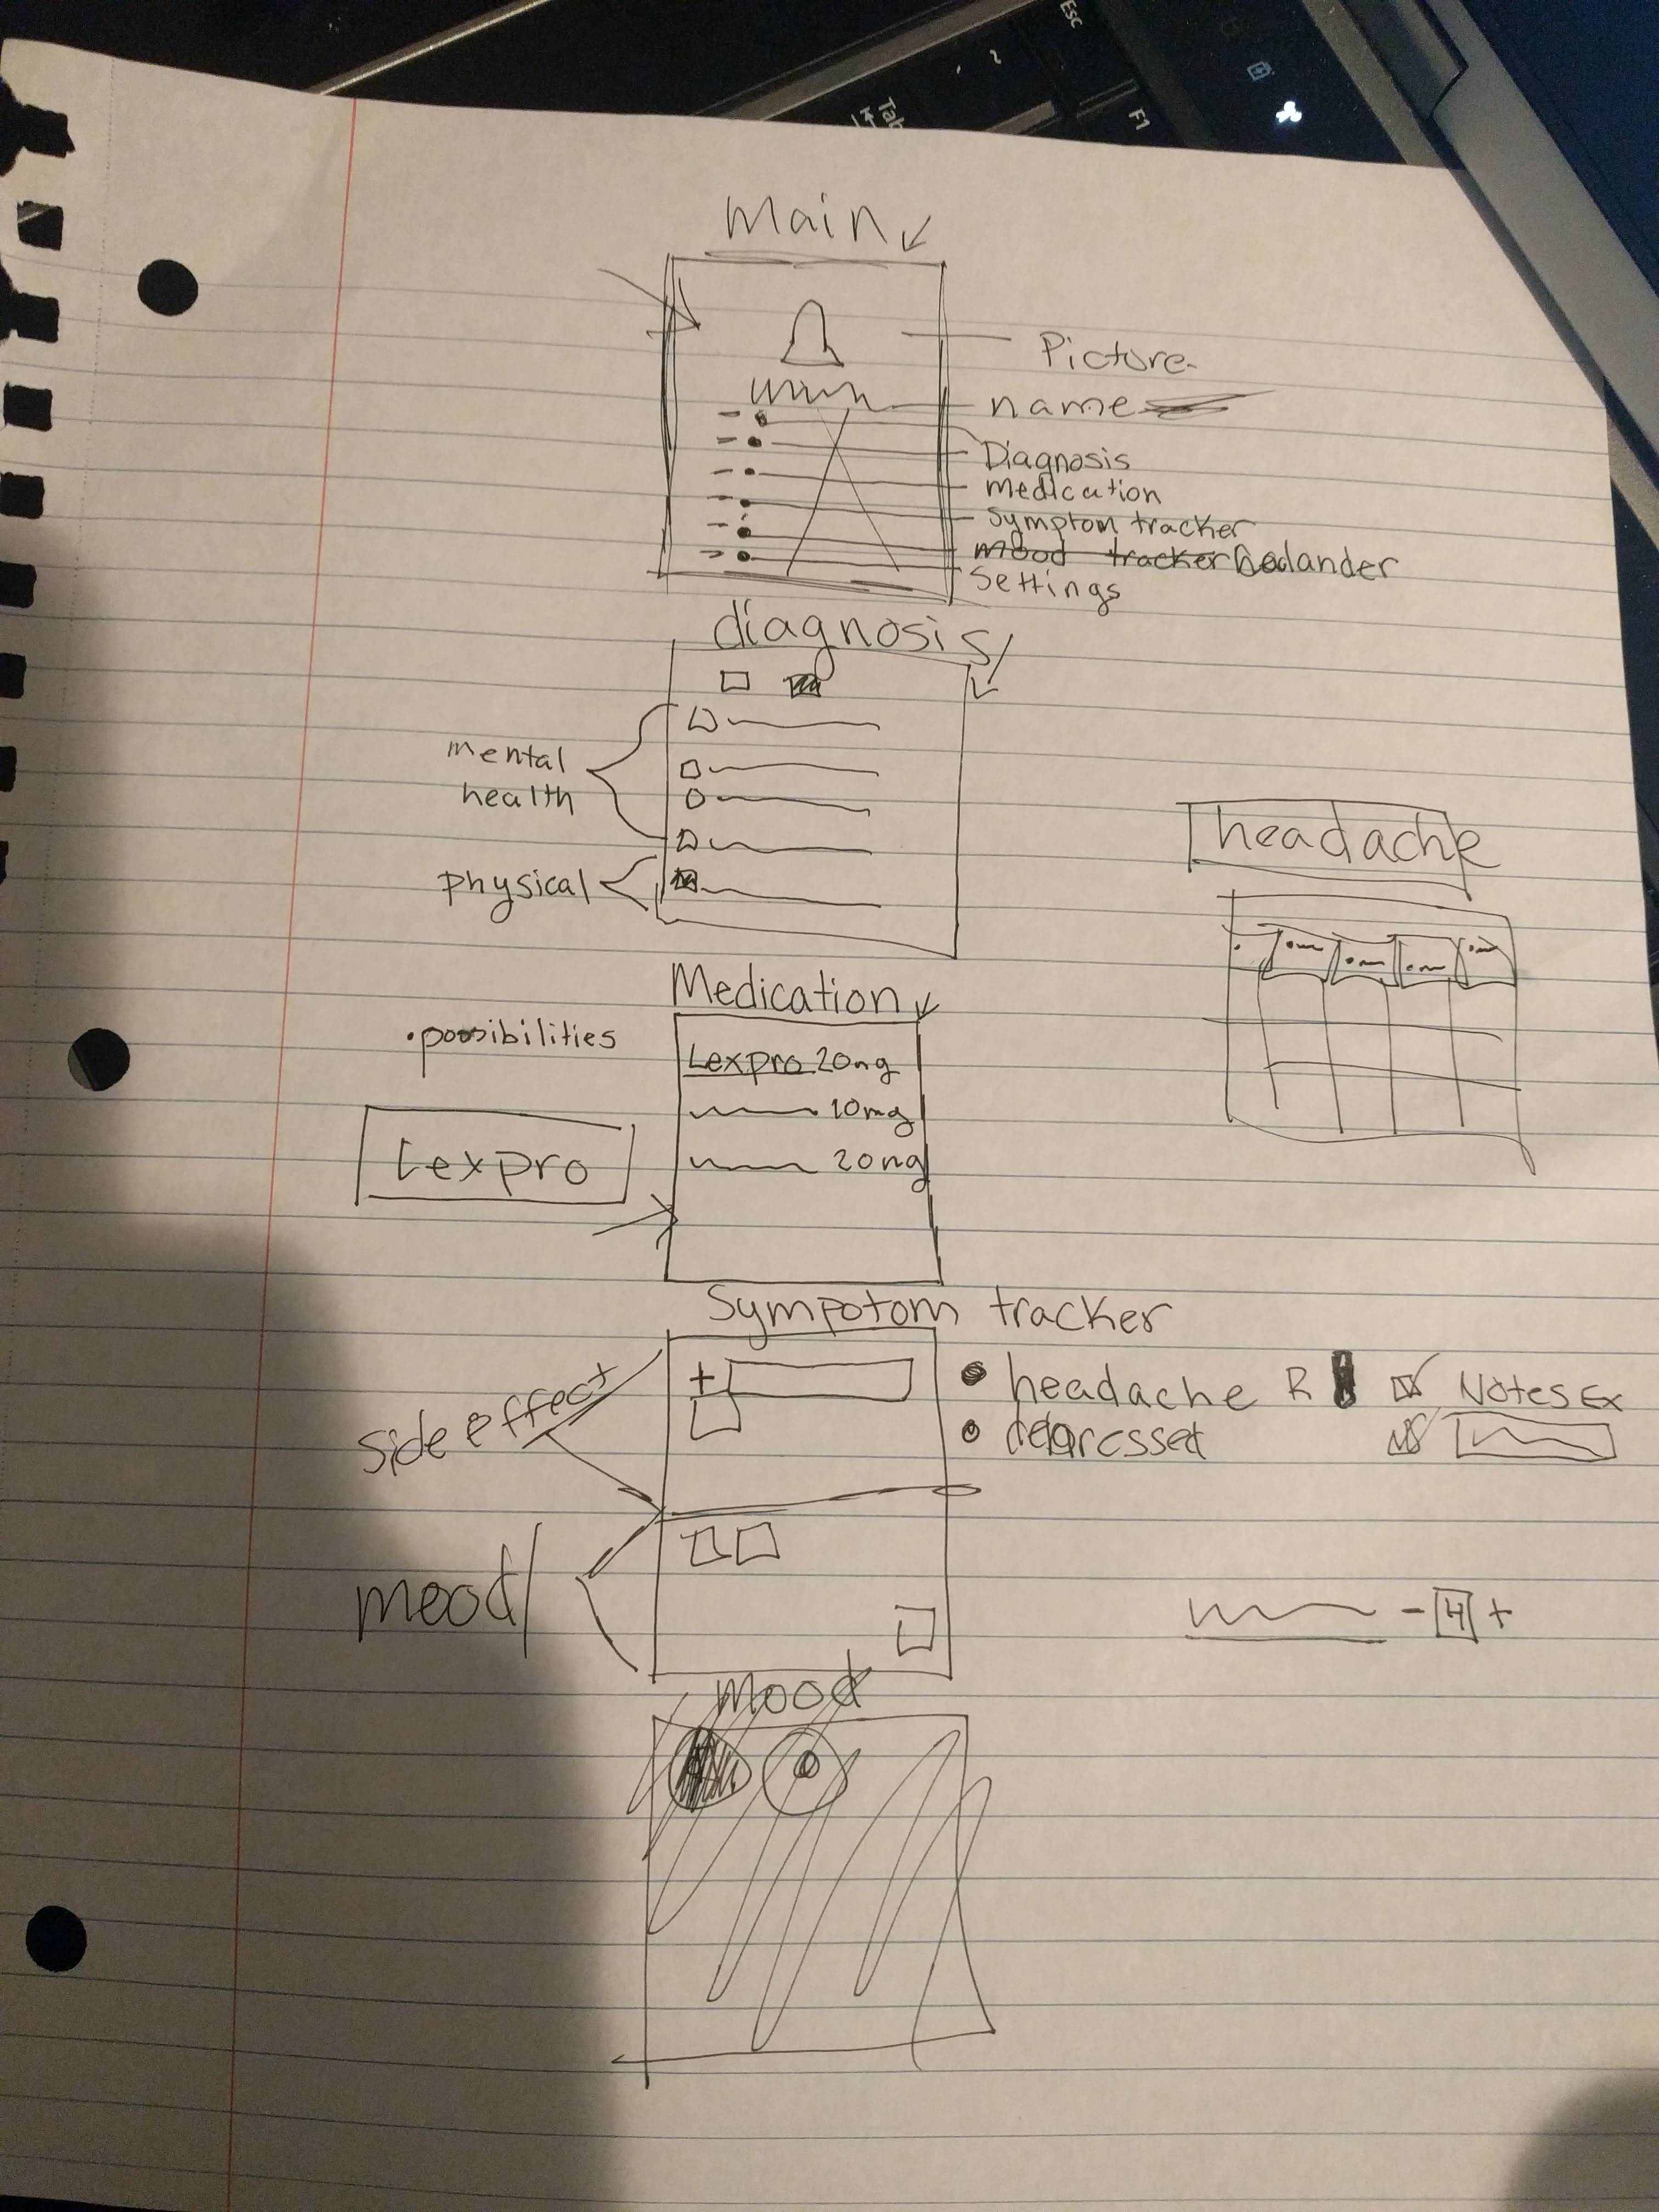 Esc
Tab
F1
main
Picture
name
Diagnosis
medication
symptom tracker
mood tracker
Settings
diagnosis
mental
health
physical
headache
Medication
• possibilities
Lexpro 20mg
10mg
20mg
Lexpro
Sympotom tracker
side effect
headache R
Notes Ex
mood
- 4 +
mood